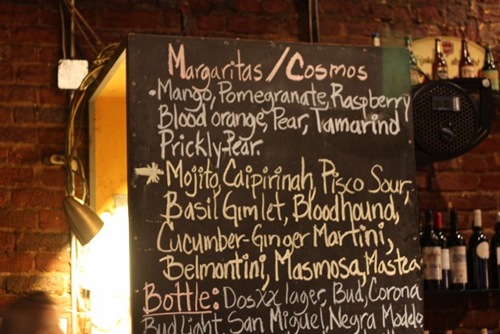 Margaritas/Cosmos
·Mango, Pomegranate, Raspberry
Blood orange, Pear, Tamarind
Prickly-Pear.
*Mojito, Caipirinah, Pisco Sour,
Basil Gimlet, Bloodhound,
Cucumber-Ginger Martini,
Belmontini, Masmosa, Mastea
Bottle: Dos XX lager, Bud, Corona
Bud Light, San Miguel, Negra Modelo